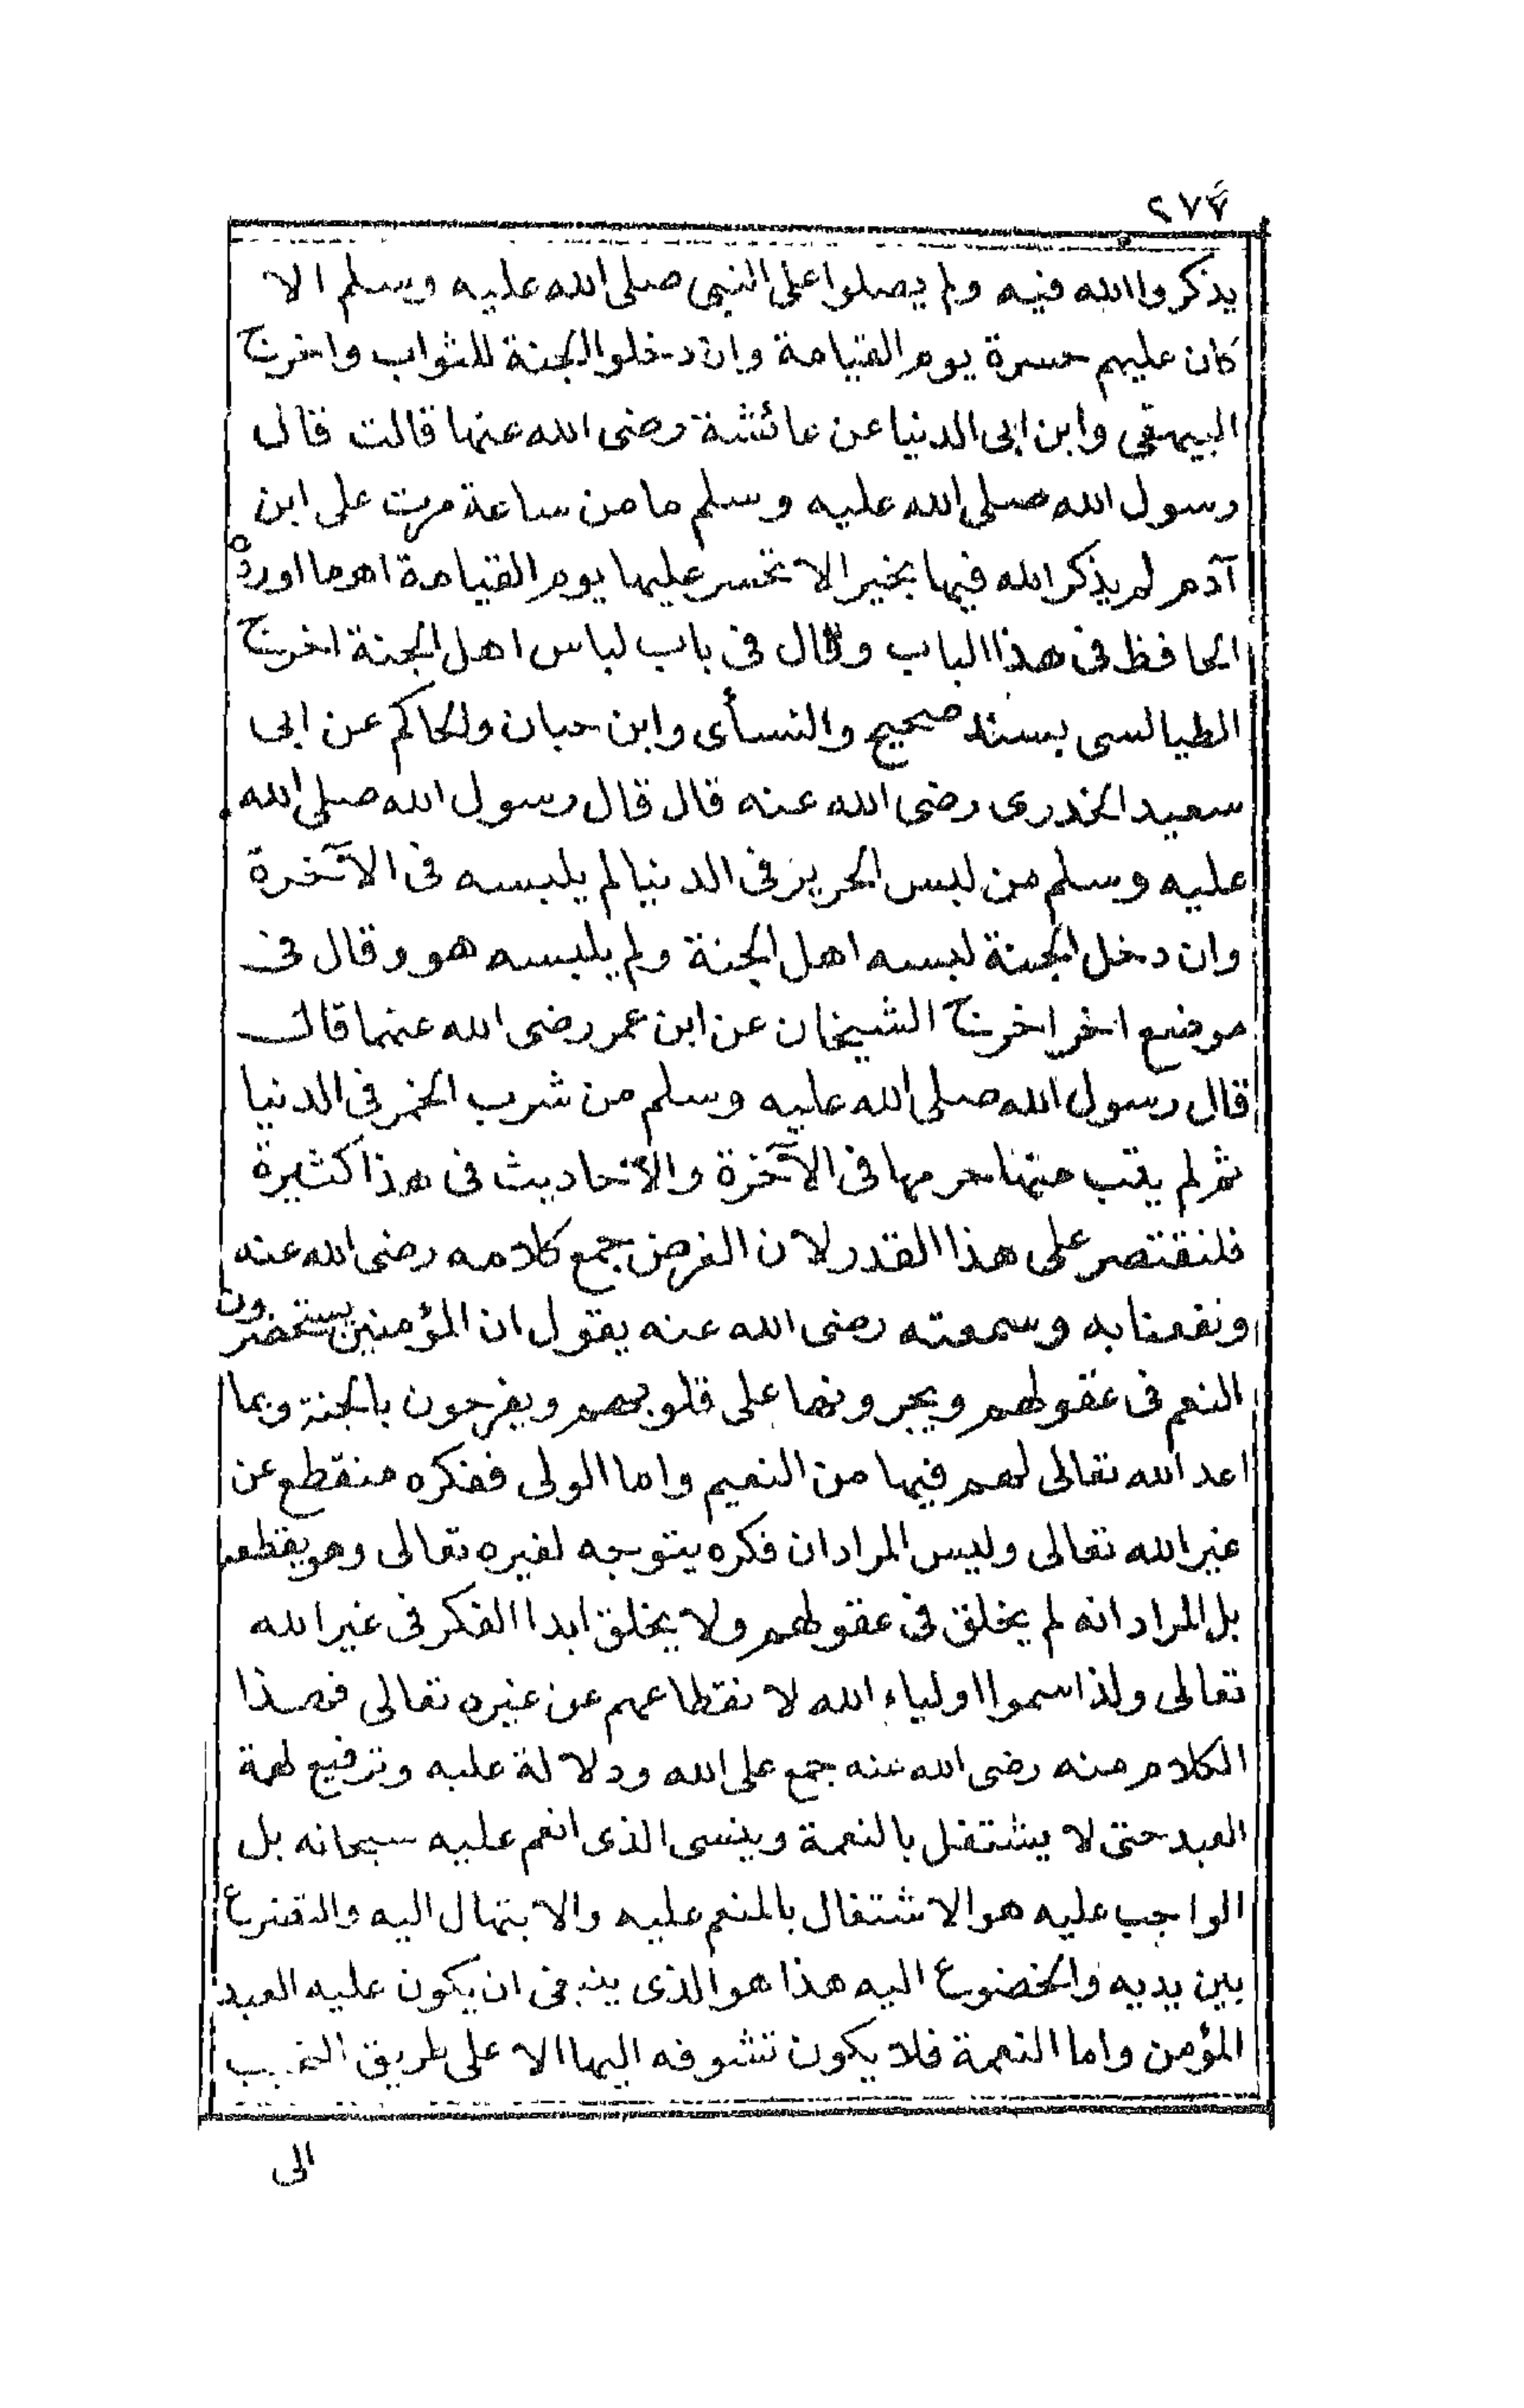 ٢٧٤
يذكروا الله فيه ولم يصلوا على النبى صلى الله عليه وسلم الا
كان عليهم حسرة يوم القيامة وان دخلوا الجنة للثواب واخرج
البيهقى وابن ابى الدنيا عن عائشة رضى الله عنها قالت قال
رسول الله صلى الله عليه وسلم ما من ساعة مرت على ابن
آدم لم يذكر الله فيها بخير الا تحسر عليها يوم القيامة اه وما اورده
الحافظ فى هذا الباب وقال فى باب لباس اهل الجنة اخرج
الطيالسى بسند صحيح والنسأى وابن حبان والحاكم عن ابى
سعيد الخدرى رضى الله عنه قال قال رسول الله صلى الله
عليه وسلم من لبس الحرير فى الدنيا لم يلبسه فى الآخرة
وان دخل الجنة لبسه اهل الجنة ولم يلبسه هو وقال فى
موضع اخر اخرج الشيخان عن ابن عمر رضى الله عنهما قال
قال رسول الله صلى الله عليه وسلم من شرب الخمر فى الدنيا
ثم لم يتب منها حرمها فى الآخرة والأحاديث فى هذا كثيرة
فلنقتصر على هذا القدر لان الغرض جمع كلامه رضى الله عنه
ونفعنا به وسمعته رضى الله عنه يقول ان المؤمنين يستحضرون
النعم فى عقولهم ويجرونها على قلوبهم ويفرحون بالجنة وبما
اعد الله تعالى لهم فيها من النعيم واما الولى ففكره منقطع عن
غير الله تعالى وليس المراد ان فكره يتوجه لغيره تعالى وهو يقطعه
بل المراد انه لم يخلق فى عقولهم ولا يخلق ابدا الفكر فى غير الله
تعالى ولذا سموا اولياء الله لانقطاعهم عن غيره تعالى فهذا
الكلام منه رضى الله عنه جمع على الله ودلالة عليه وترفيع لهمة
العبد حتى لا يشتغل بالنعمة وينسى الذى انعم عليه سبحانه بل
الواجب عليه هو الاشتغال بالمنعم عليه والابتهال اليه والتضرع
بين يديه والخضوع اليه هذا هو الذى ينبغى ان يكون عليه العبد
المؤمن واما النعمة فلا يكون تشوفه اليها الا على طريق
الى